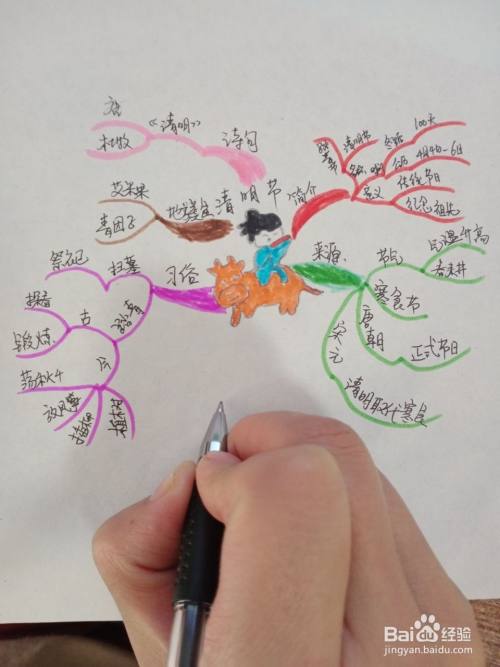 唐
杜牧
《清明》
诗句
艾米果
青团子
地方美食
清明节
简介
清明节
冬至
100天
公历
4月4日-6日
意义
传统节日
纪念祖先
祭祀
扫墓
习俗
踏青
古
探春
锻炼
今
荡秋千
放风筝
植树
来源
节气
气温升高
春来
寒食节
唐朝
正式节日
宋元
清明取代寒食
Baidu 经验
jingyan.baidu.com